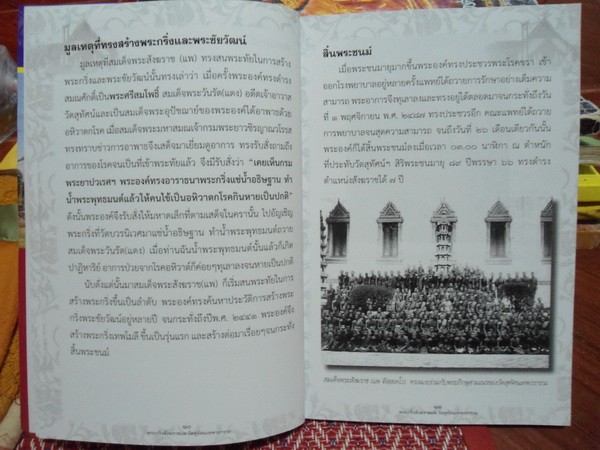 มูลเหตุที่ทรงสร้างพระกริ่งและพระชัยวัฒน์
มูลเหตุที่สมเด็จพระสังฆราช (แพ) ทรงสนพระทัยในการสร้าง
พระกริ่งและพระชัยวัฒน์นั้นทรงเล่าว่า เมื่อครั้งพระองค์ทรงดำรง
สมณศักดิ์เป็นพระศรีสมโพธิ์ สมเด็จพระวันรัต(แดง) อดีตเจ้าอาวาส
วัดสุทัศน์และเป็นสมเด็จพระอุปัชฌาย์ของพระองค์ได้อาพาธด้วย
อหิวาตกโรค เมื่อสมเด็จพระมหาสมณเจ้ากรมพระยาวชิรญาณวโรรส
ทรงทราบข่าวการอาพาธจึงเสด็จมาเยี่ยมดูอาการ ทรงรับสั่งถามถึง
อาการของโรคจนเป็นที่เข้าพระทัยแล้ว จึงมีรับสั่งว่า "เคยเห็นกรม
พระยาปวเรศฯ พระองค์ทรงอาราธนาพระกริ่งแช่น้ำอธิษฐาน ทำ
น้ำพระพุทธมนต์แล้วให้คนไข้เป็นอหิวาตกโรคกินหายเป็นปกติ"
ดังนั้นพระองค์จึงรับสั่งให้มหาดเล็กที่ตามเสด็จในครานั้น ไปอัญเชิญ
พระกริ่งที่วัดบวรนิเวศมาแช่น้ำอธิษฐาน ทำน้ำพระพุทธมนต์ถวาย
สมเด็จพระวันรัต(แดง) เมื่อท่านฉันน้ำพระพุทธมนต์นั้นแล้วก็เกิด
ปาฏิหาริย์ อาการป่วยจากโรคอหิวาต์ก็ค่อยๆทุเลาลงจนหายเป็นปกติ
นับตั้งแต่นั้นมาสมเด็จพระสังฆราช(แพ) ก็เริ่มสนพระทัยในการ
สร้างพระกริ่งขึ้นเป็นลำดับ พระองค์ทรงค้นหาประวัติการสร้างพระ
กริ่งพระชัยวัฒน์อยู่หลายปี จนกระทั่งถึงปีพ.ศ. ๒๔๔๑ พระองค์จึง
สร้างพระกริ่งเทพโมลี ขึ้นเป็นรุ่นแรก และสร้างต่อมาเรื่อยๆจนกระทั่ง
สิ้นพระชนม์
สิ้นพระชนม์
เมื่อพระชนมายุมากขึ้นพระองค์ทรงประชวรพระโรคชรา เข้า
ออกโรงพยาบาลอยู่หลายครั้งแพทย์ได้ถวายการรักษาอย่างเต็มความ
สามารถ พระอาการจึงทุเลาลงและทรงอยู่ได้ตลอดมาจนกระทั่งถึงวัน
ที่ ๑ พฤศจิกายน พ.ศ. ๒๔๘๗ ทรงประชวรอีก คณะแพทย์ได้ถวาย
การพยาบาลจนสุดความสามารถ จนถึงวันที่ ๒๖ เดือนเดียวกันนั้น
พระองค์ก็ได้สิ้นพระชนม์ลงเมื่อเวลา ๐๓.๐๐ นาฬิกา ณ ตำหนัก
ที่ประทับวัดสุทัศน์ฯ สิริพระชนมายุ ๘๙ ปีพรรษา ๖๖ ทรงดำรง
ตำแหน่งสังฆราชได้ ๗ ปี